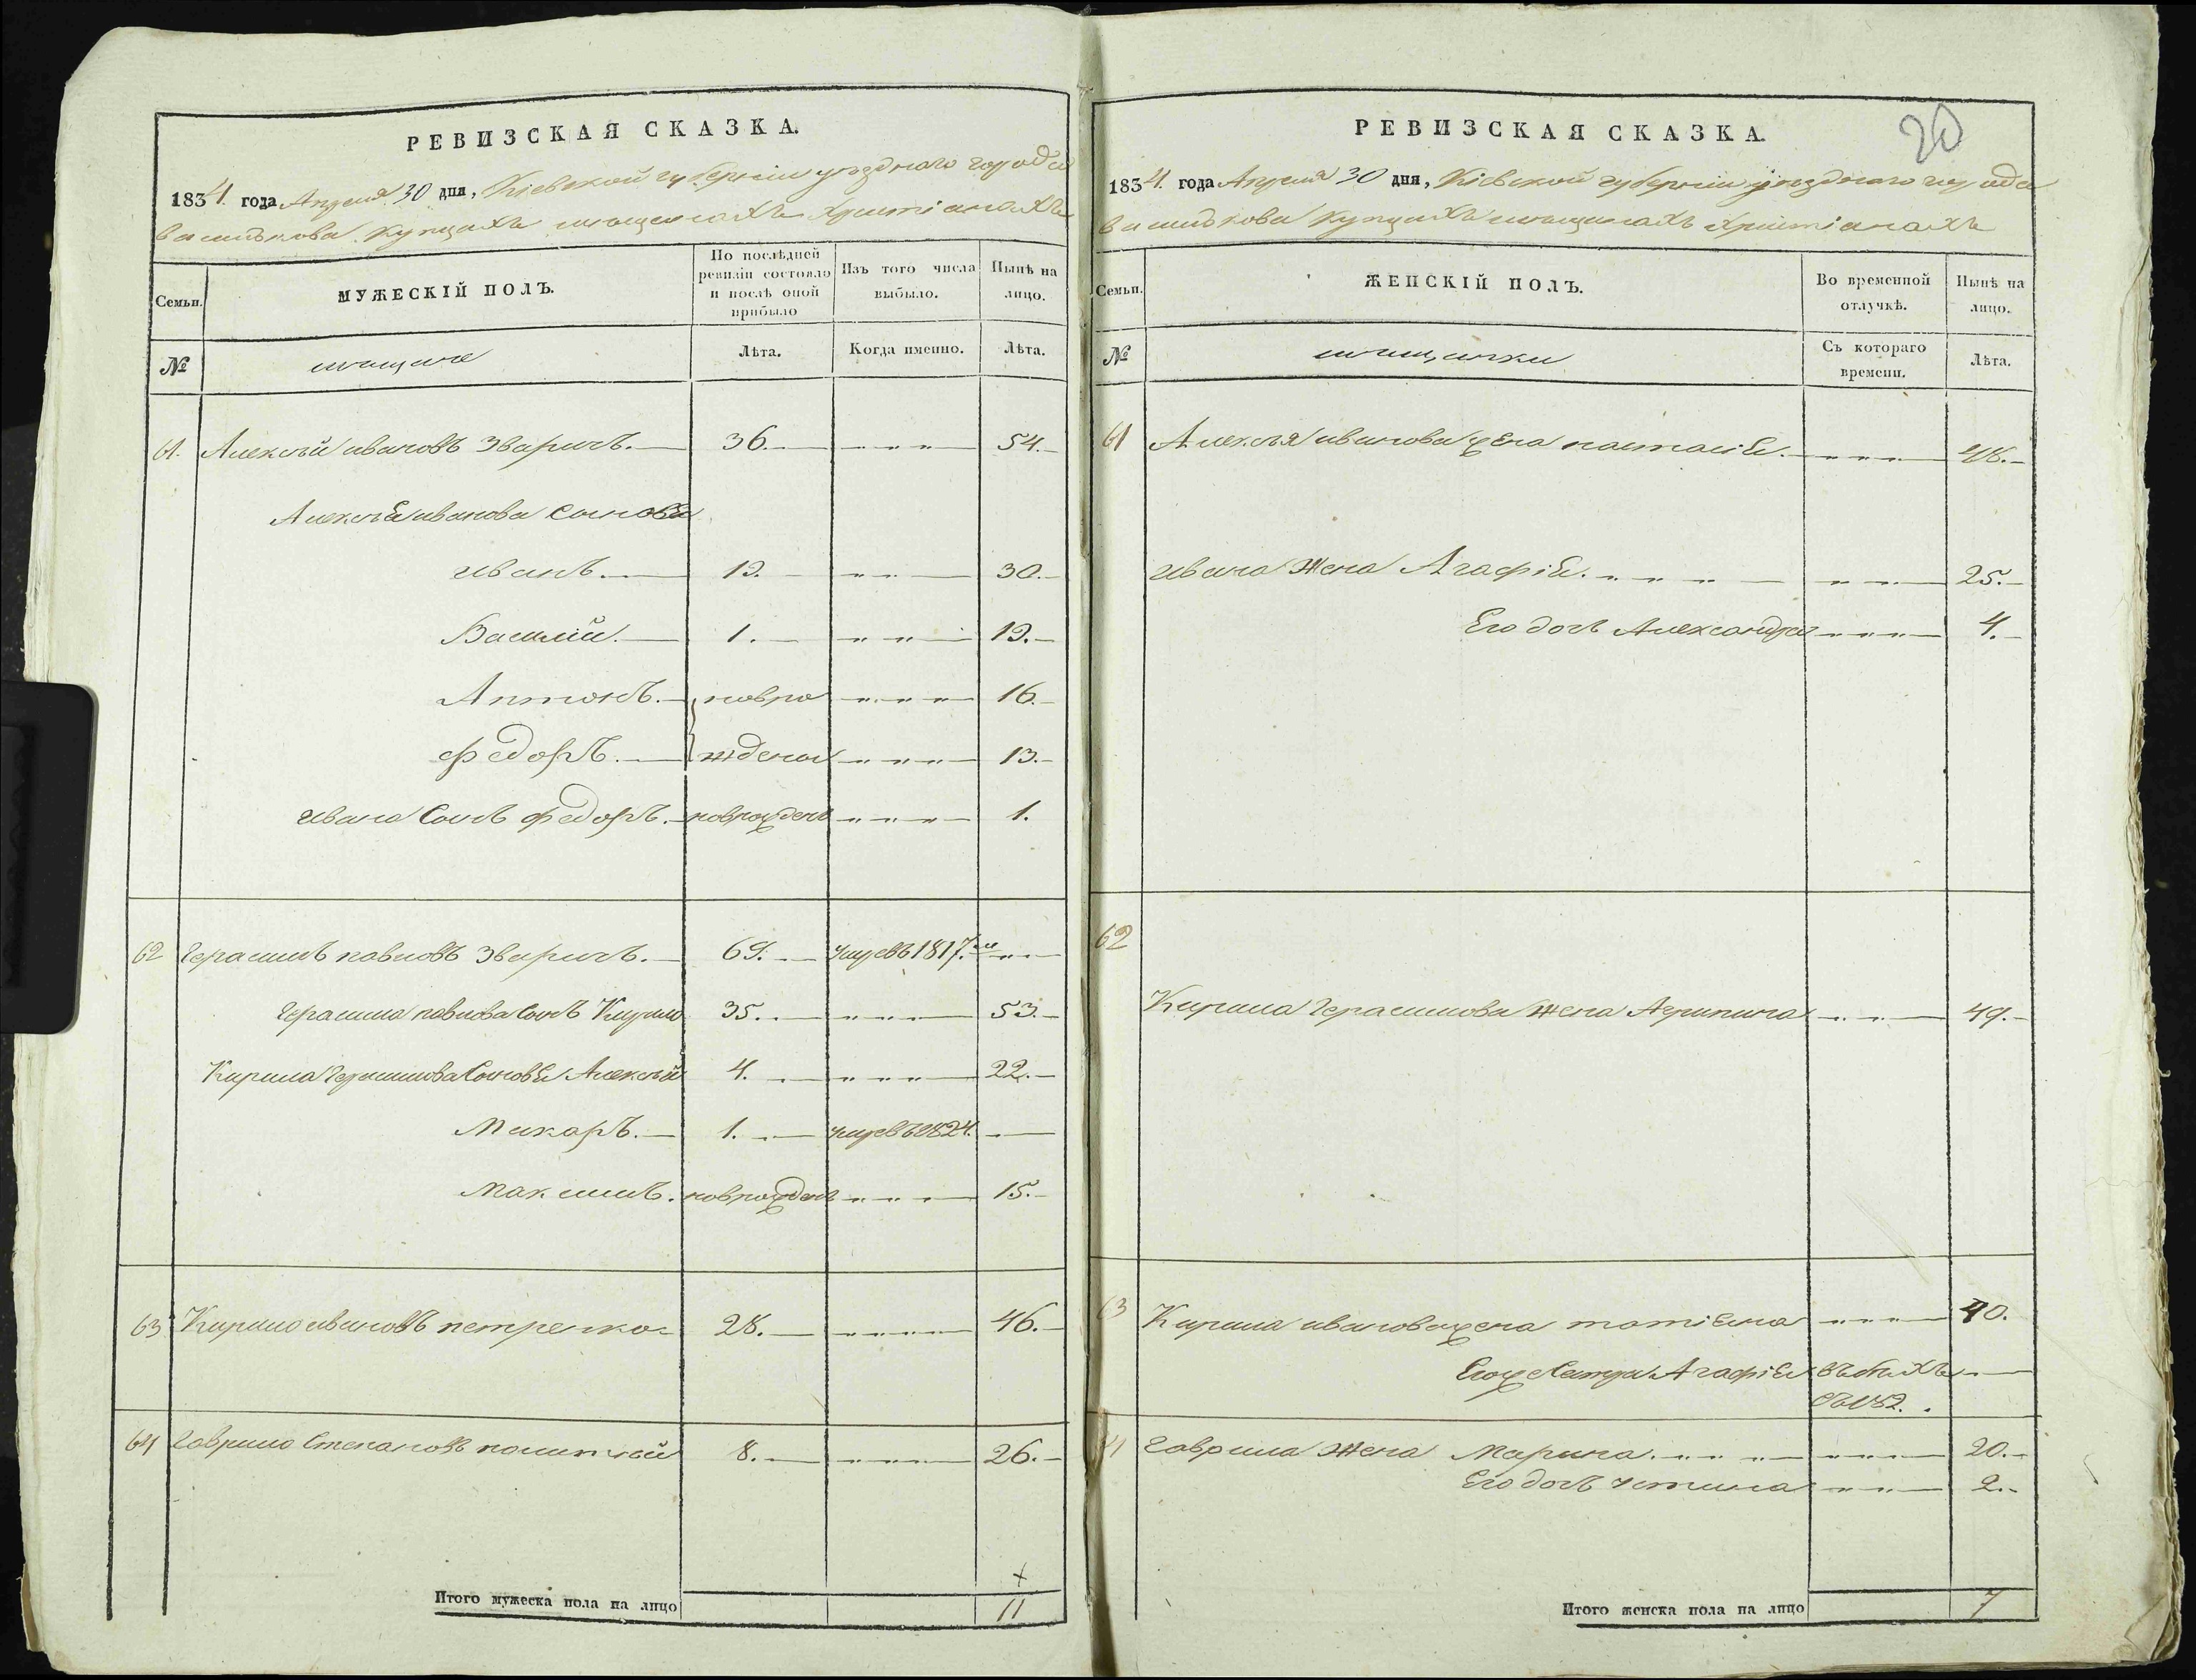 РЕВИЗСКАЯ СКАЗКА.
1834. года Апреля 30 дня, Кіевской губерніи уѣзднаго города
василькова купцахъ мещанахъ христіанахъ
Семьи.
МУЖЕСКІЙ ПОЛЪ.
По послѣдней ревизіи состояло и послѣ оной прибыло
Изъ того числа выбыло.
Нынѣ на лицо.
№
мещане
Лѣта.
Когда именно.
Лѣта.
61. Алексѣй ивановъ Зваричъ. 36. 54.
Алексѣя иванова Сыновья
иванъ. 12. 30.
Василій. 1. 19.
Антонъ. новро 16.
Федоръ. ждены 13.
ивана Сынъ Федоръ. новрожденъ 1.
62 Герасимъ павловъ Зваричъ. 69. умревъ 1817.
Герасима павлова Сынъ Кирило 35. 53.
Кирила Герасимова Сыновья Алексѣй 4. 22.
Макаръ. 1. умревъ 1824.
Максимъ. новрожденъ 15.
63 Кирило ивановъ петренко 28. 46.
64 Гаврило Степановъ 8. 26.
Итого мужеска пола на лицо 11
РЕВИЗСКАЯ СКАЗКА.
20
1834. года Апреля 30 дня, Кіевской губерніи уѣзднаго города
василькова купцахъ мещанахъ христіанахъ
Семьи.
ЖЕНСКІЙ ПОЛЪ.
Во временной отлучкѣ.
Нынѣ на лицо.
№
мещанки
Съ котораго времени.
Лѣта.
61 Алексѣя иванова жена настасія. 48.
ивана жена Агафія. 25.
Его дочь Александра 4.
62
Кирила Герасимова жена Агрипина 49.
63 Кирила иванова жена татіяна 40.
Его же Сестра Агафія въ бѣгахъ
64 Гаврила жена Марина. 20.
Его дочь устина 2.
Итого женска пола на лицо 7